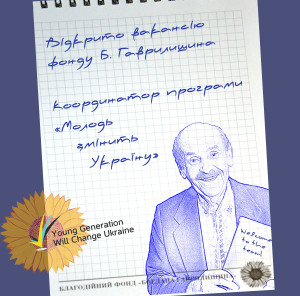 Відкрито вакансію
фонду Б. Гаврилишина
координатор програми
«Молодь
змінить
Україну»
Young Generation
Will Change Ukraine
Welcome
to the
team!
БЛАГОДІЙНИЙ ФОНД «БОГДАНА ГАВРИЛИШИНА»